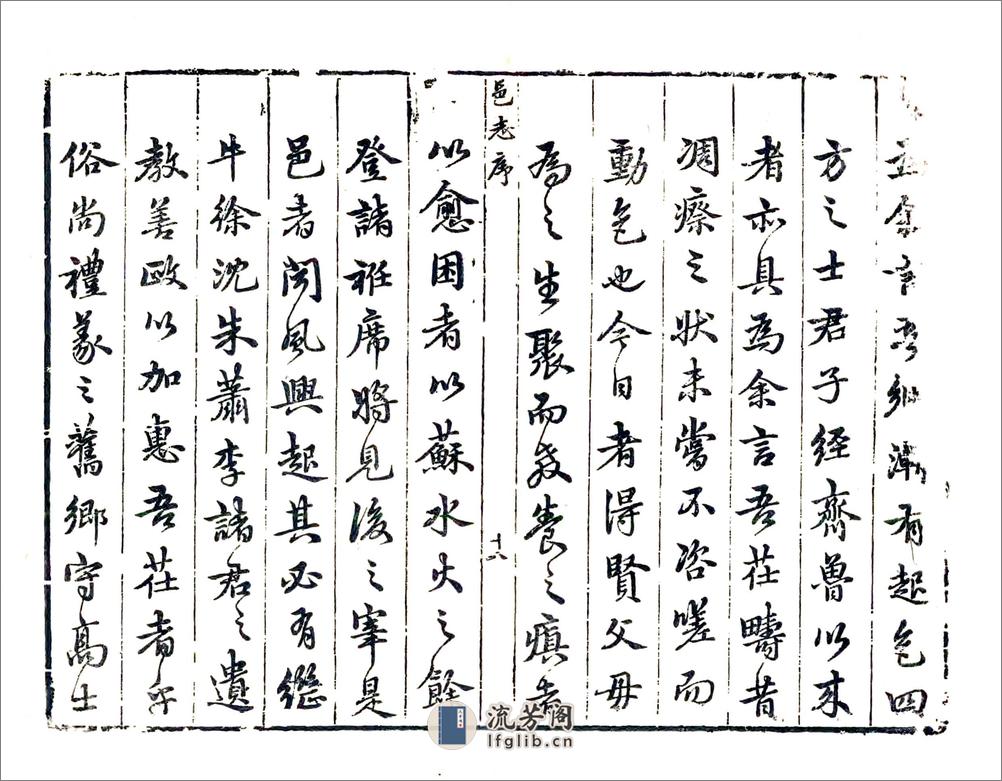 余言吾鄉漸有起色四
方之士君子經齊魯以來
者亦具為余言吾茌疇昔
凋瘵之狀未嘗不咨嗟而
動色也今日者得賢父母
為之生聚而教養之瘨者
以愈困者以蘇水火之餘
登諸袵席將見後之宰是
邑者聞風興起其必有繼
牛徐沈朱蕭李諸君之遺
教善政以加惠吾茌者乎
俗尚禮義之舊鄉守高士
邑志序
十八
流芳阁
lfglib.cn